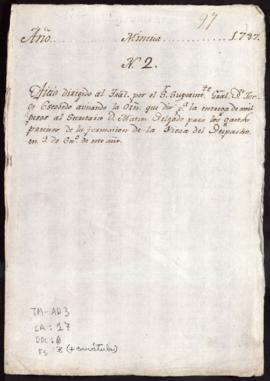 97
Año Mineria 1787.
N. 2.
Oficio dirigido al Tral. por el Sr. Superint.te Gral. Dn. Jor-
ge Escobedo avisando la Orn. que dió pa. la entrega de mil
pesos al Secretario D. Matias Delgado para los gastos
de la formacion de la Pieza del Despacho,
en 3 de En.o de este año.
TM-AD3
CA: 17
DOC:
FS (+ carátula)